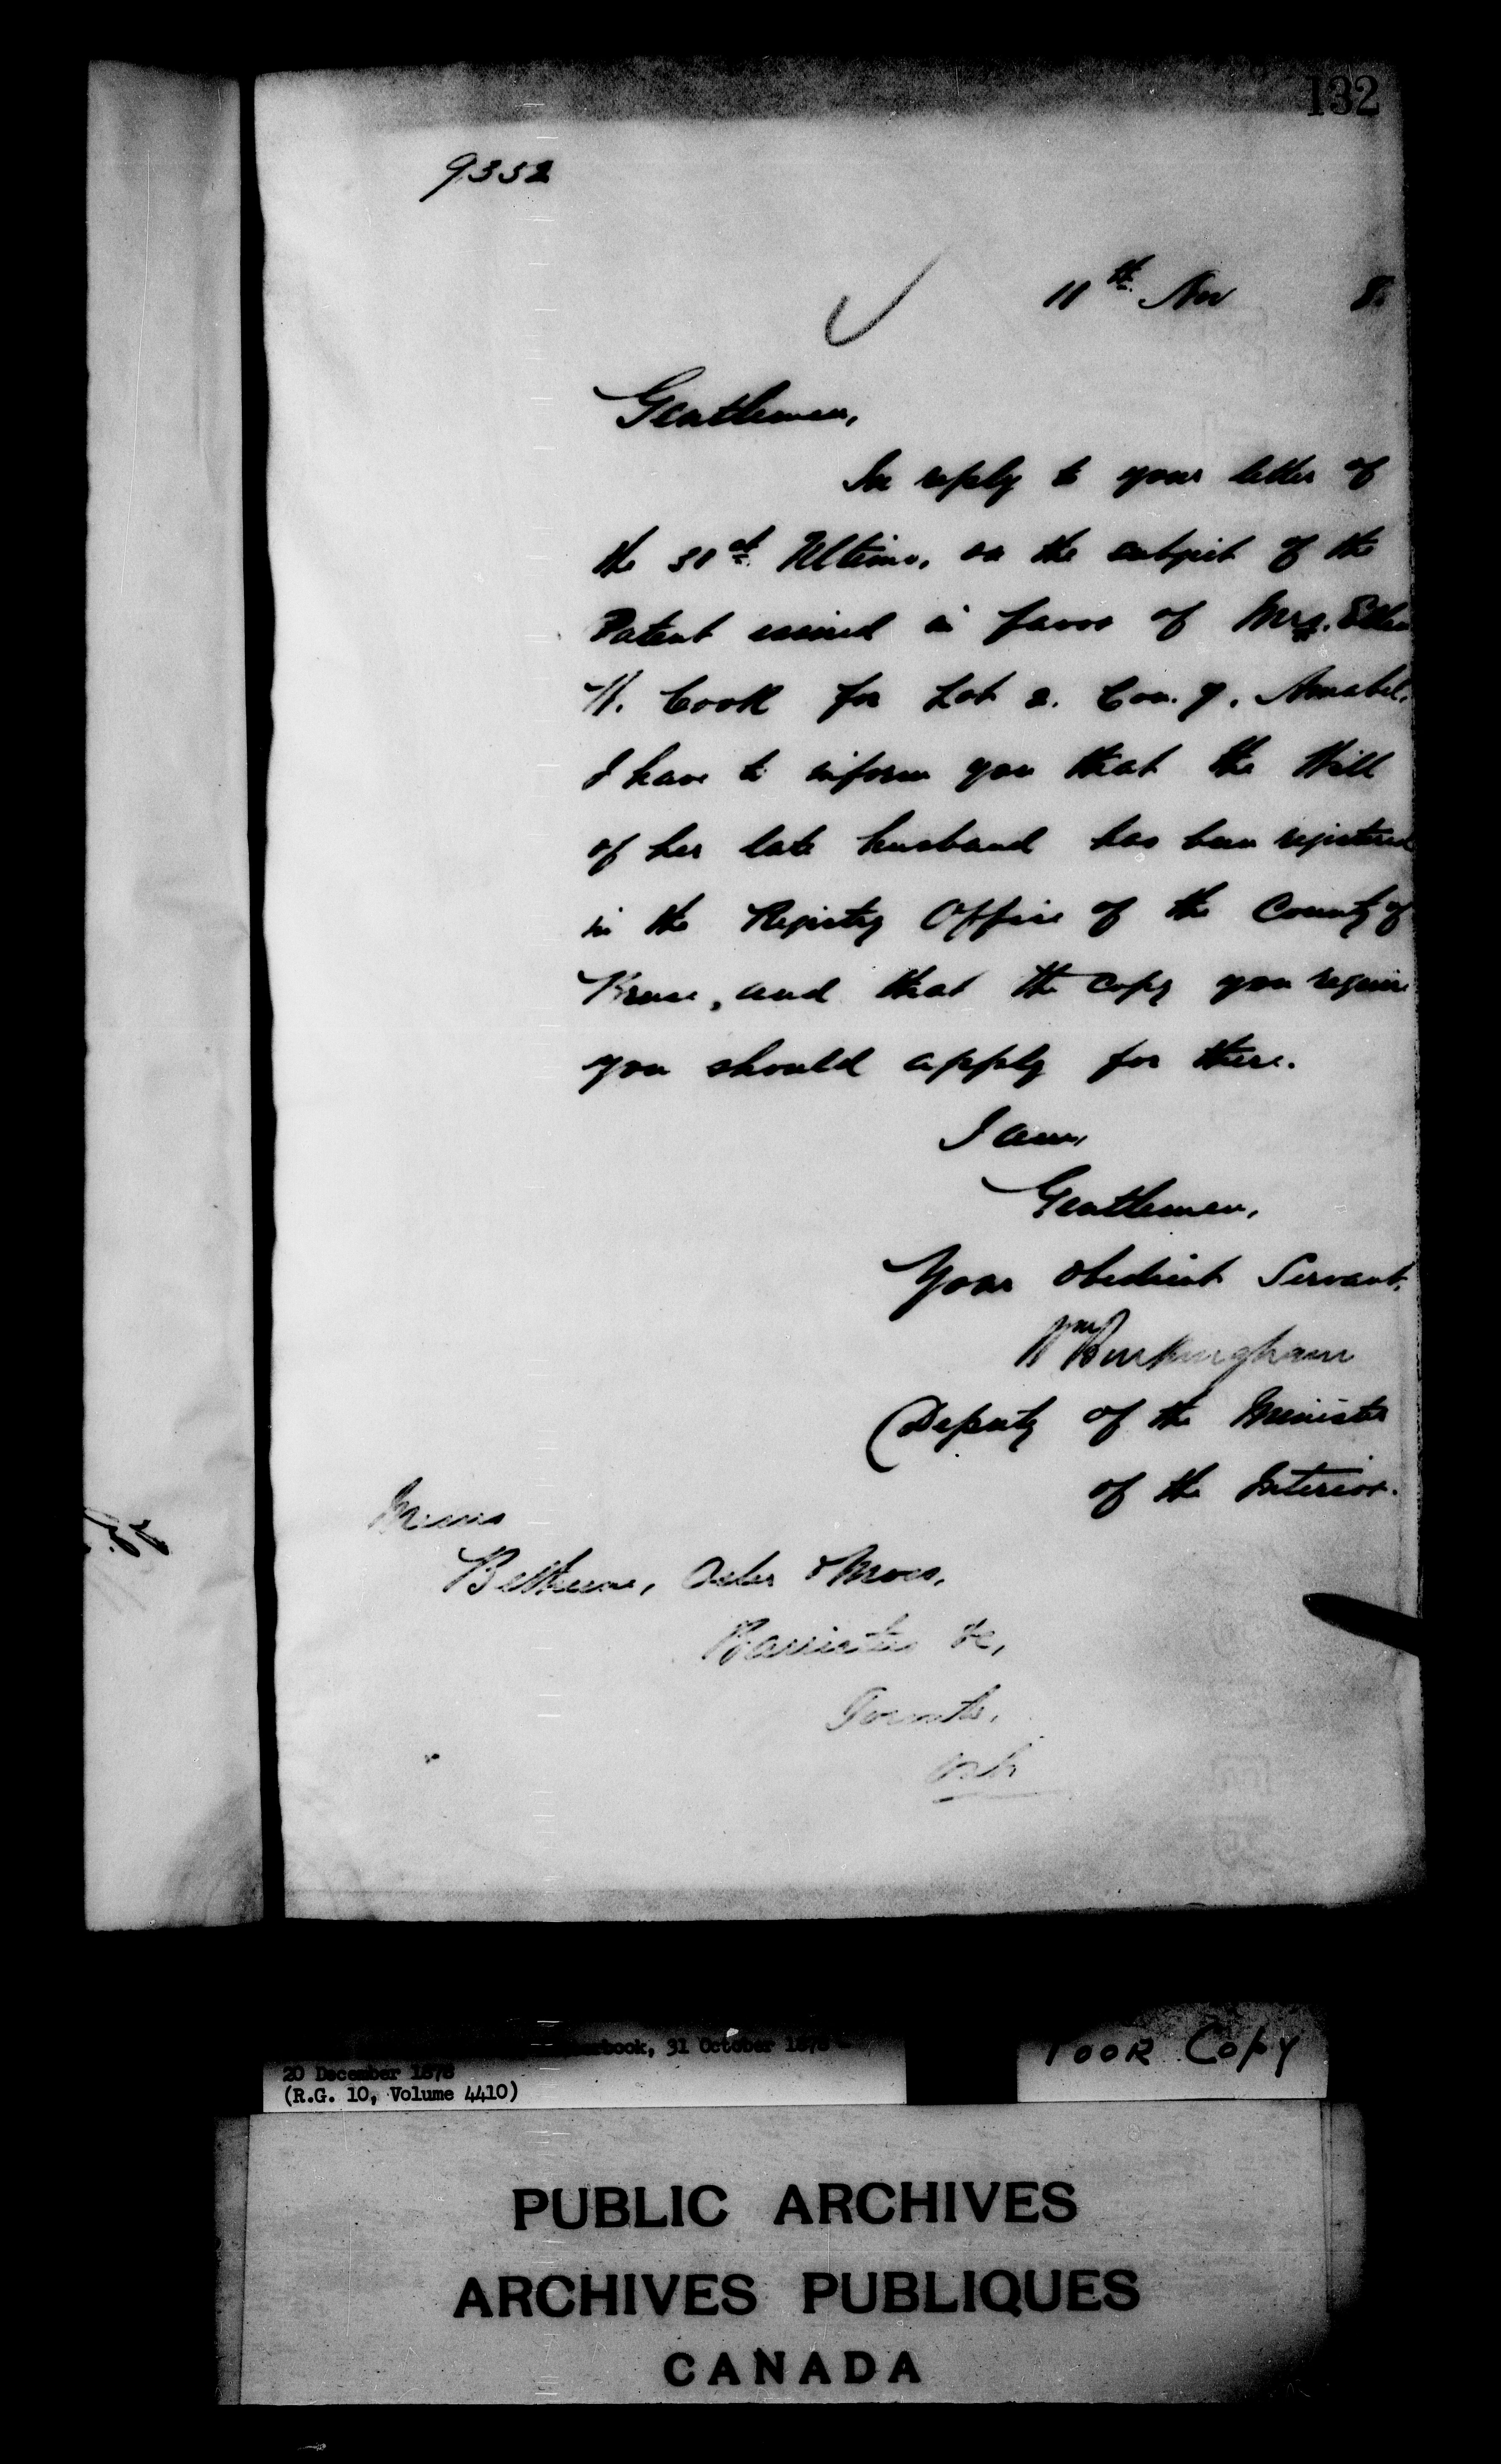 132
9352
11th Nov 8
Gentlemen,
In reply to your letter of
the 31st Ultimo, on the subject of the
Patent issued in favor of Mrs. Ellen
W. Cook for Lot 2. Con. 7. Amabel.
I have to inform you that the Will
of her late husband has been registered
in the Registry Office of the County of
Bruce, and that the copy you require
you should apply for there.
I am,
Gentlemen,
Your obedient Servant,
Wm Buckingham
Deputy of the Minister
of the Interior.
Messrs
Bethune, Osler & Moss,
Barristers &c,
Toronto,
Ont
erbook, 31 October 1878 -
20 December 1878
(R.G. 10, Volume 4410)
Poor Copy
PUBLIC ARCHIVES
ARCHIVES PUBLIQUES
CANADA